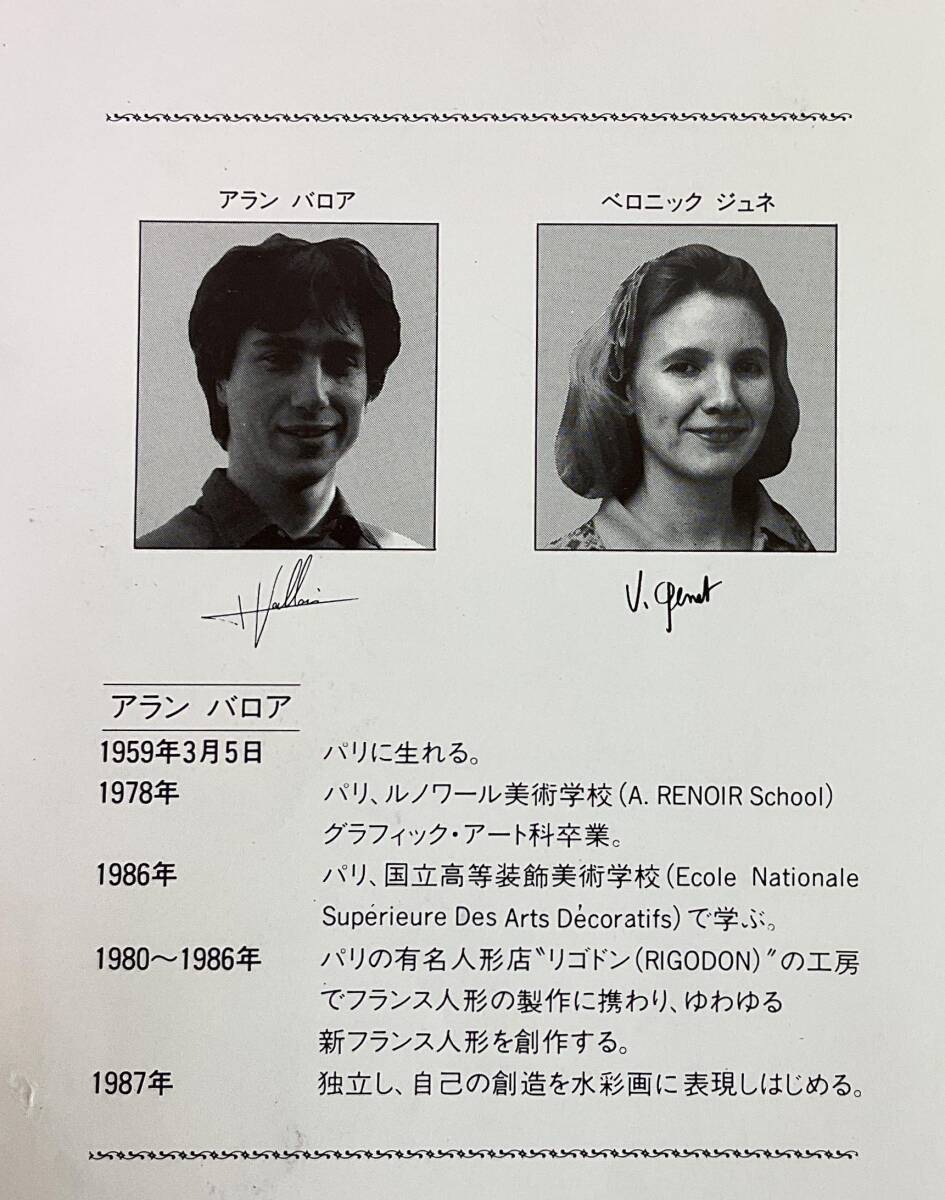 アラン バロア
ベロニック ジュネ
V. Genet
アラン バロア
1959年3月5日 パリに生れる。
1978年 パリ、ルノワール美術学校(A. RENOIR School)
グラフィック・アート科卒業。
1986年 パリ、国立高等装飾美術学校(Ecole Nationale
Supérieure Des Arts Décoratifs)で学ぶ。
1980〜1986年 パリの有名人形店〝リゴドン(RIGODON)〟の工房
でフランス人形の製作に携わり、ゆわゆる
新フランス人形を創作する。
1987年 独立し、自己の創造を水彩画に表現しはじめる。